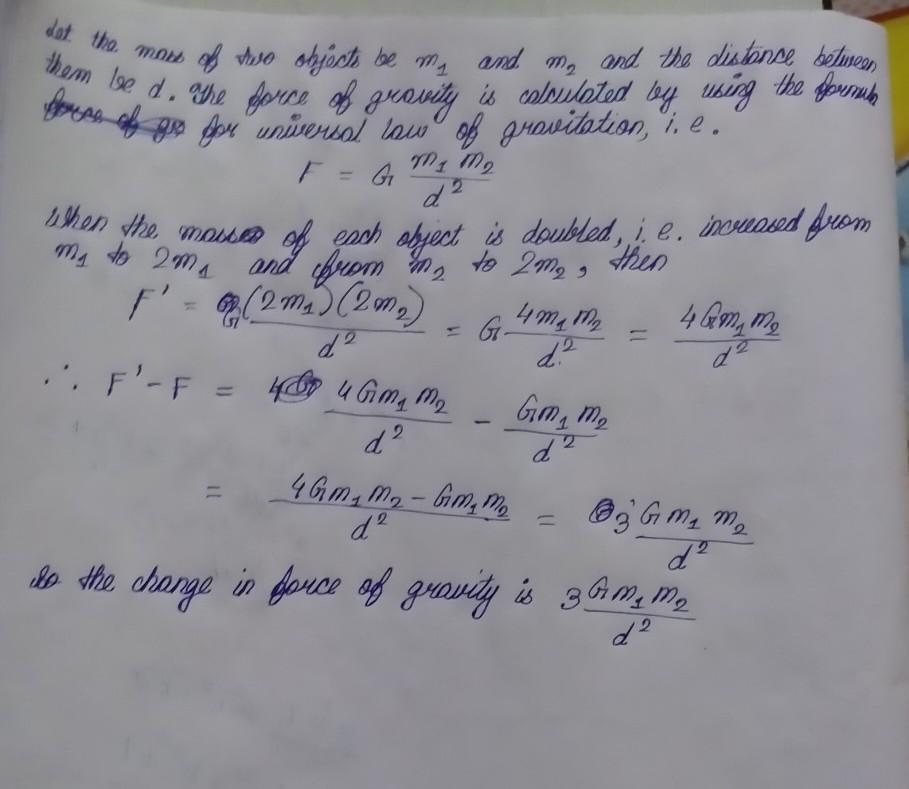 Let the mass of two objects be m₁ and m₂ and the distance between
them be d. The force of gravity is calculated by using the formula
for universal law of gravitation, i.e.
F = G m₁ m₂ / d²
When the masses of each object is doubled, i.e. increased from
m₁ to 2m₁ and from m₂ to 2m₂, then
F' = G (2m₁)(2m₂) / d² = G 4m₁m₂ / d² = 4Gm₁m₂ / d²
∴ F' - F = 4Gm₁m₂ / d² - Gm₁m₂ / d²
= 4Gm₁m₂ - Gm₁m₂ / d² = 3 Gm₁m₂ / d²
So the change in force of gravity is 3 Gm₁m₂ / d²